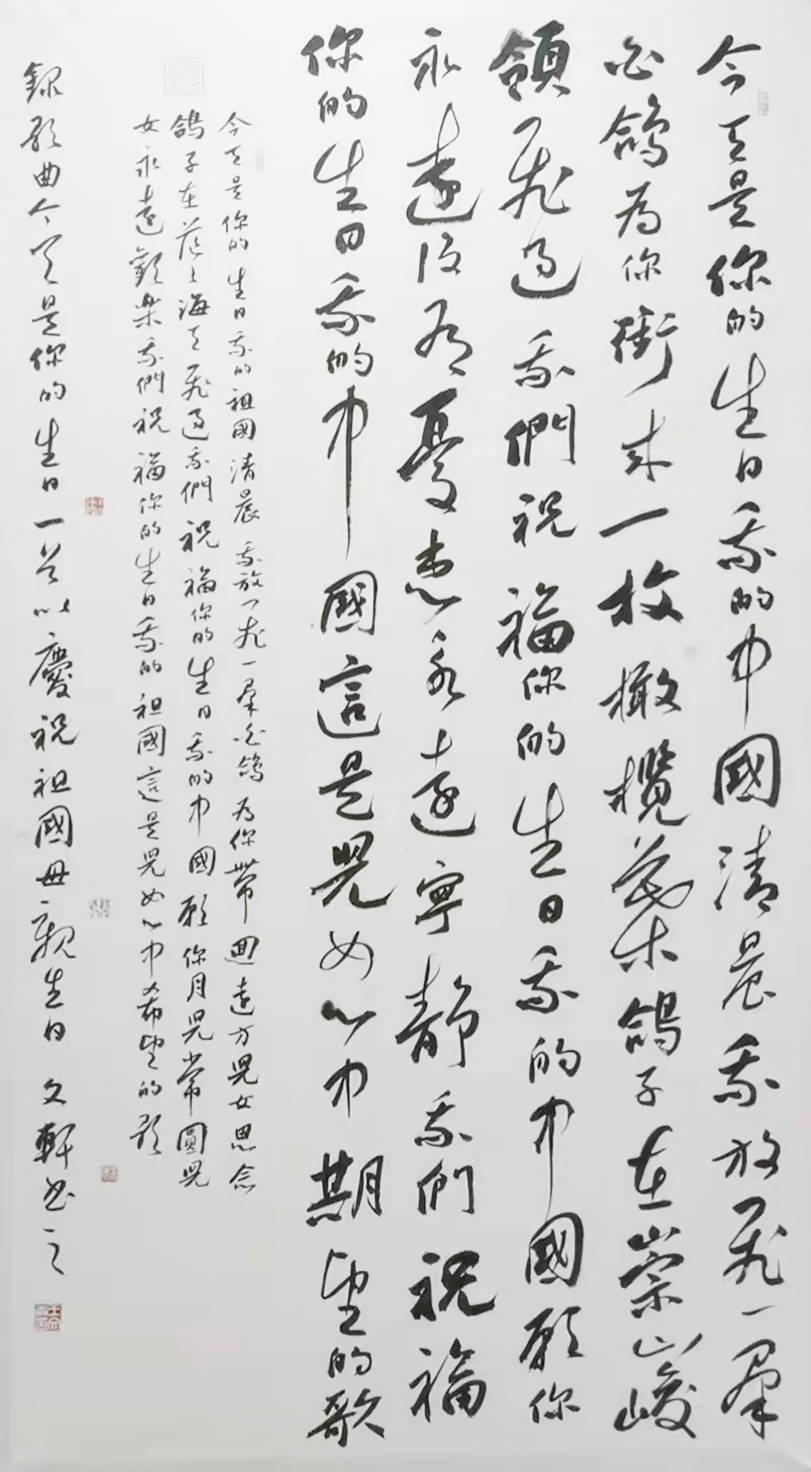 今天是你的生日我的中國清晨我放飛一羣
白鴿為你銜來一枚橄欖葉鴿子在崇山峻
領飛過我們祝福你的生日我的中國願你
永遠没有憂患永遠寧靜我們祝福
你的生日我的中國這是兒女心中期望的歌
今天是你的生日我的祖國清晨我放飛一羣白鴿為你帶回遠方兒女思念
鴿子在茫茫海天飛過我們祝福你的生日我的中國願你月兒常圓兒
女永遠歡樂我們祝福你的生日我的祖國這是兒女心中希望的歌
録歌曲今天是你的生日一首以慶祝祖國母親生日文軒書之